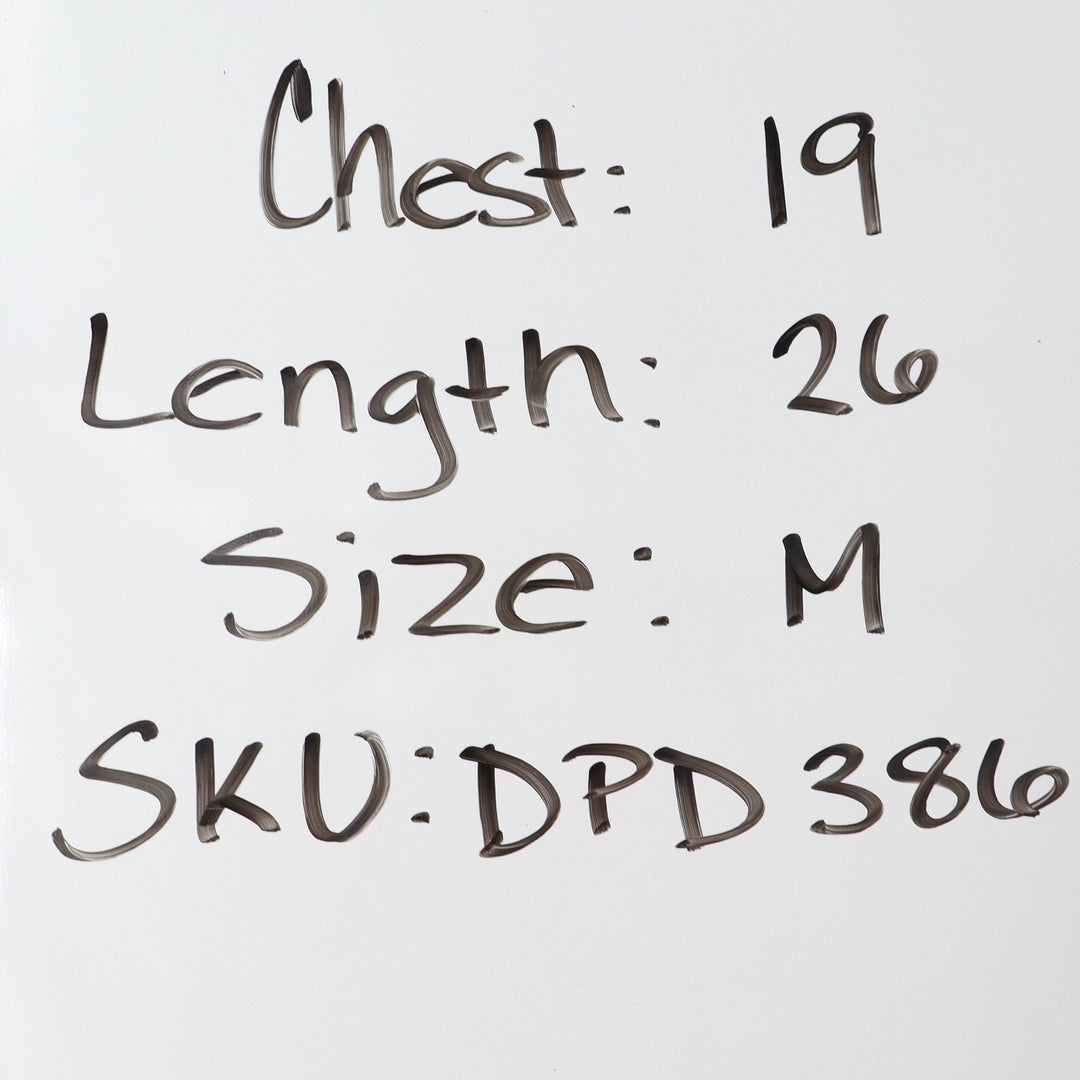 Chest: 19
Length: 26
Size: M
SKU: DPD 386